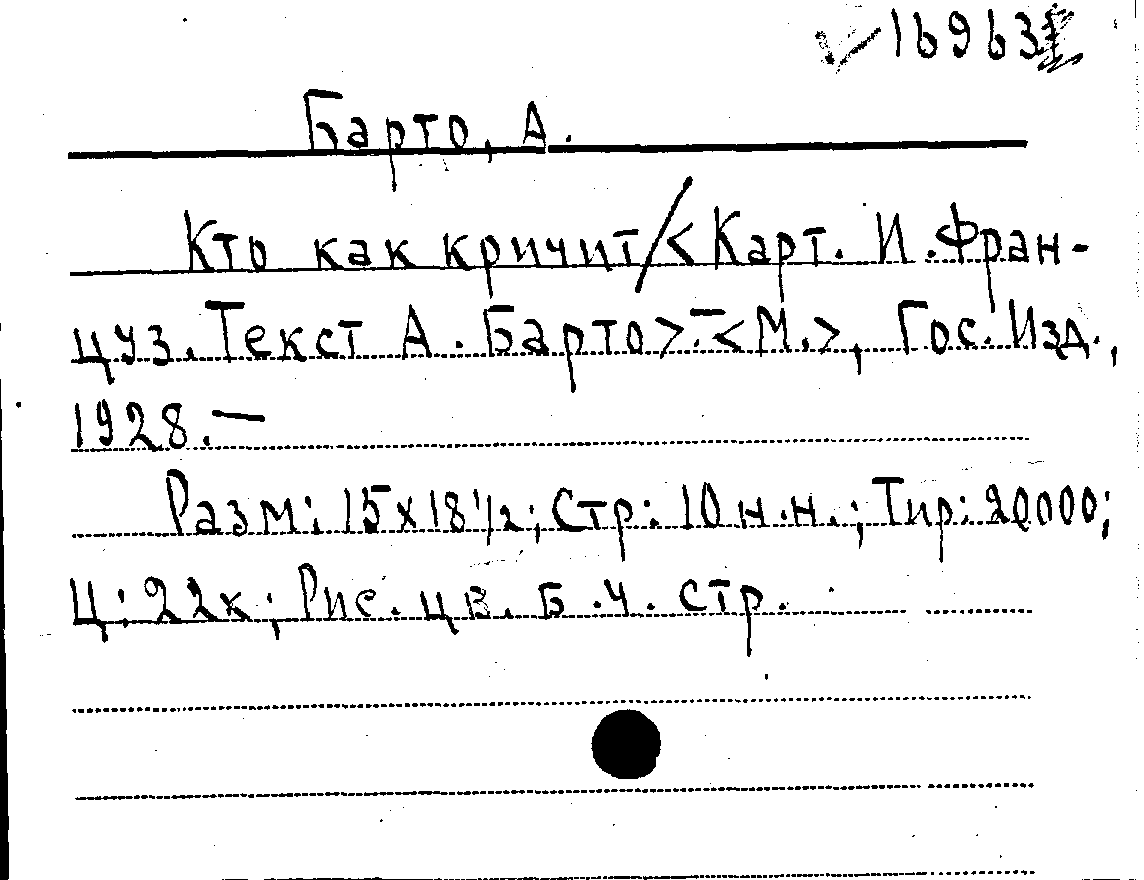 16963
Барто, А.
Кто как кричит/<Карт. И. Фран-
цуз. Текст А. Барто>.—<М.>, Гос. Изд.,
1928.—
Разм: 15х18 1/2; Стр: 10 н.н.; Тир: 20000;
Ц: 22к; Рис. цв. б. ч. стр.